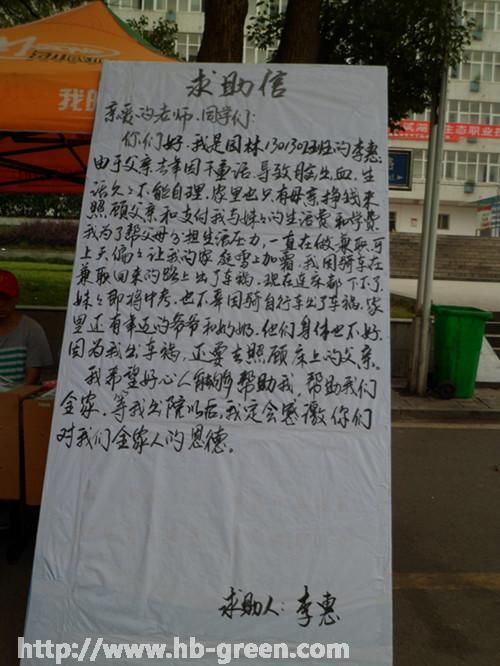 求助信
亲爱的老师、同学们:
你们好,我是园林1301302班的李惠
由于父亲去年因干重活,导致脑出血,生
活久久不能自理,家里也只有母亲挣钱来
照顾父亲和支付我与妹妹的生活费和学费
我为了帮父母分担生活压力,一直在做兼职,可
上天偏偏让我的家庭雪上加霜,我因骑车在
兼职回来的路上出了车祸,现在连床都下不了,
妹妹即将中考,也不幸因骑自行车出了车祸,家
里还有年迈的爷爷和奶奶,他们身体也不好,
因为我出车祸,还要去照顾床上的父亲。
我希望好心人能够帮助我,帮助我们
全家,等我出院以后,我定会感激你们
对我们全家人的恩德。
求助人:李惠
我的
http://www.hb-green.com